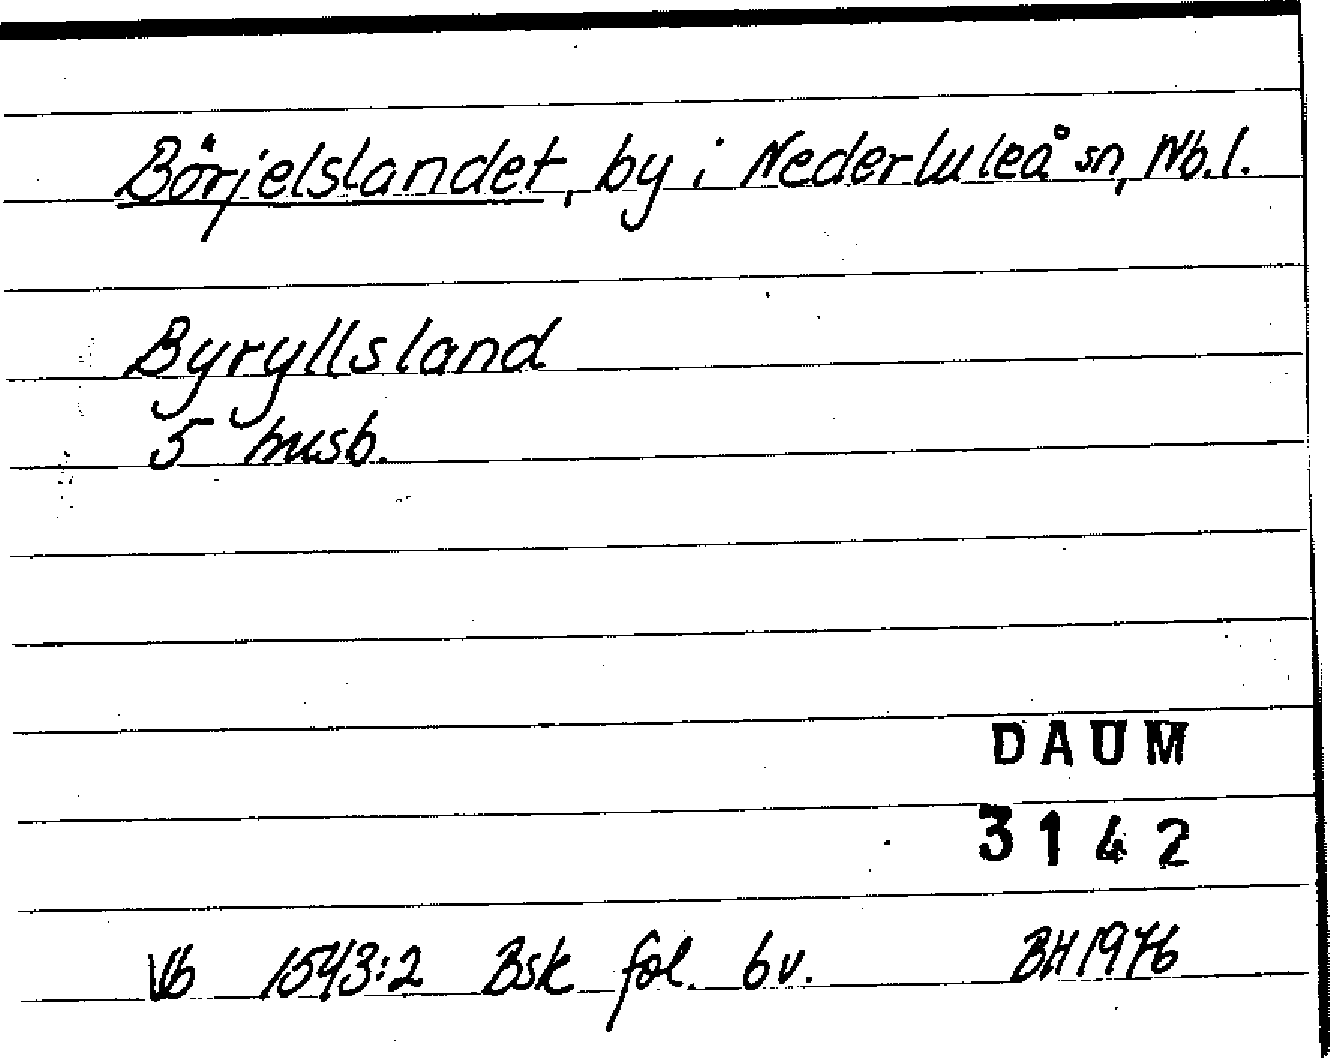 Börjelslandet, by i Nederluleå sn, Nb.l.
Byryllsland
5 husb.
DAUM
3142
Vb 1543:2 Bsk fol. 6v. BH 1976